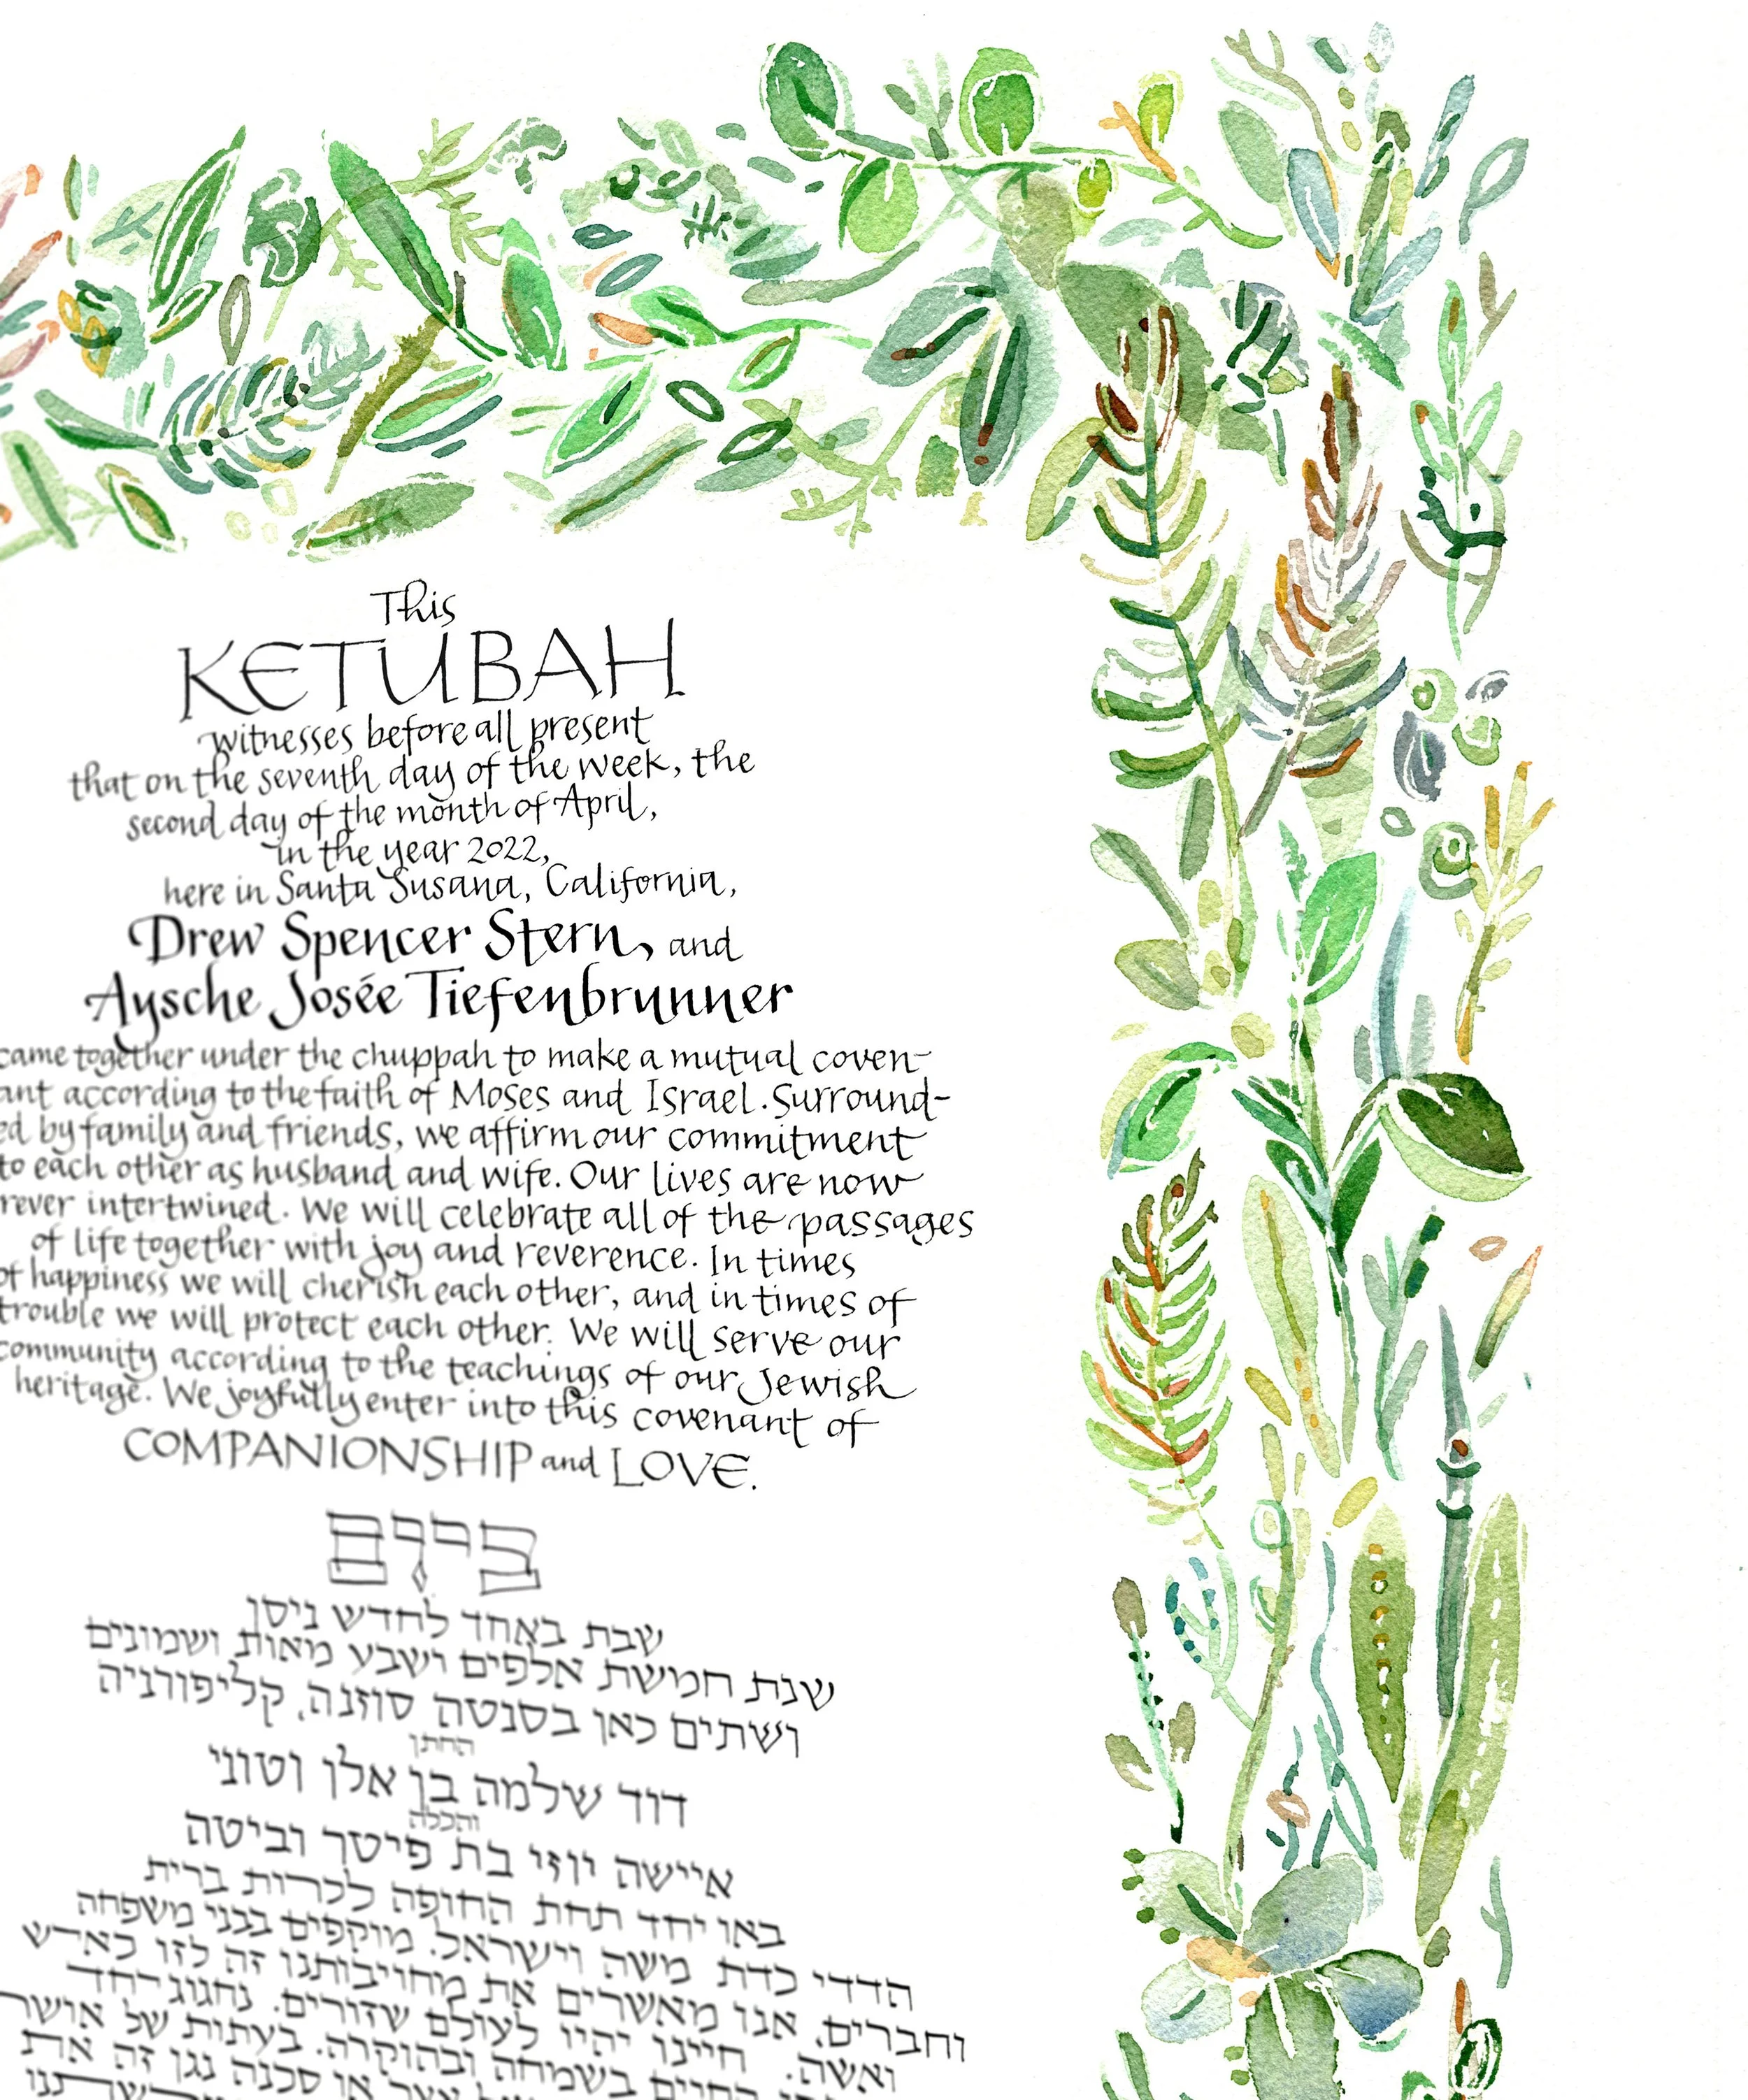 This
KETUBAH
witnesses before all present
that on the seventh day of the week, the
second day of the month of April,
in the year 2022,
here in Santa Susana, California,
Drew Spencer Stern, and
Aysche Josée Tiefenbrunner
came together under the chuppah to make a mutual coven-
ant according to the faith of Moses and Israel. Surround-
ed by family and friends, we affirm our commitment
to each other as husband and wife. Our lives are now
rever intertwined. We will celebrate all of the passages
of life together with joy and reverence. In times
of happiness we will cherish each other, and in times of
trouble we will protect each other. We will serve our
community according to the teachings of our Jewish
heritage. We joyfully enter into this covenant of
COMPANIONSHIP and LOVE.
ביום
שבת באחד לחדש ניסן
שנת חמשת אלפים ושבע מאות ושמונים
ושתים כאן בסנטה סוזנה, קליפורניה
החתן
דוד שלמה בן אלן וטוני
והכלה
איישה יוזי בת פיטר וביטה
באו יחד תחת החופה לכרות ברית
הדדי כדת משה וישראל. מוקפים בבני משפחה
וחברים, אנו מאשרים את מחויבותנו זה לזו כאיש
ואשה. חיינו יהיו לעולם שזורים. נחגוג יחד
החיים בשמחה ובהוקרה. בעתות של אושר
או סכנה נגן זה את